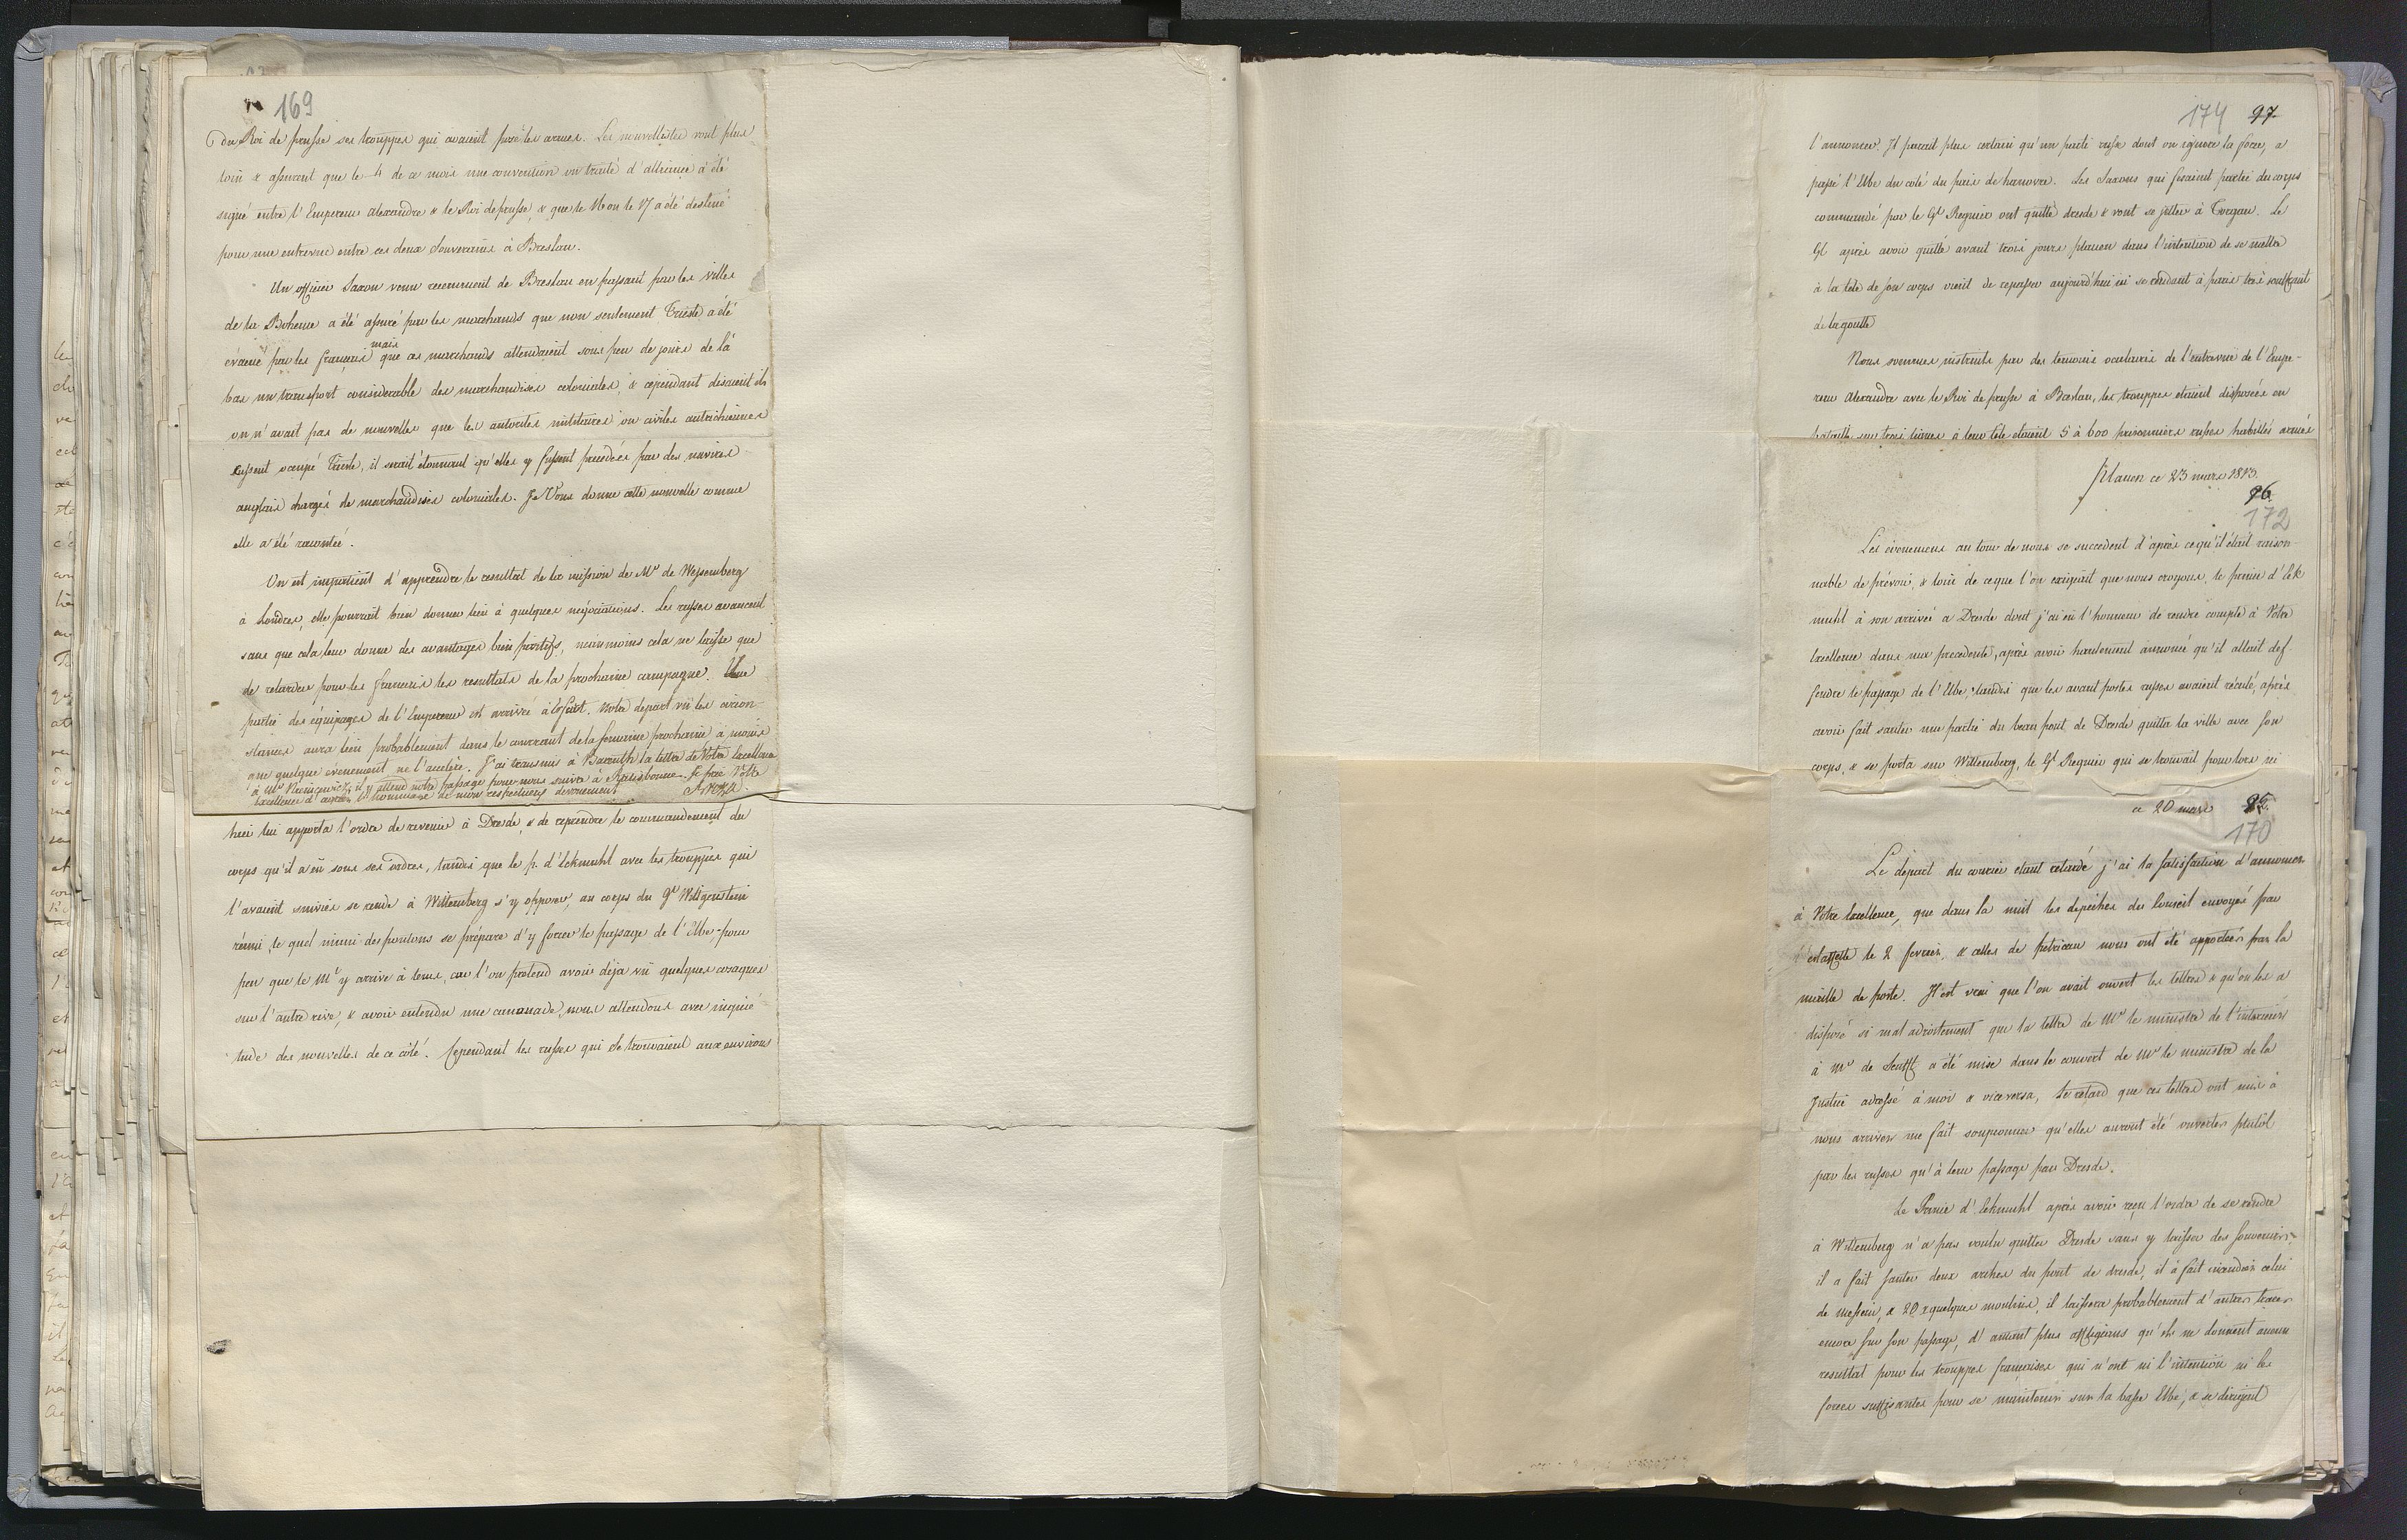 169
du Roi de prusse ses trouppes qui avaient posé les armes. Les nouvellistes vont plus
loin & assurent que le 4 de ce mois une convention un traité d'alliance a été
signé entre l'Empereur Alexandre & le Roi de prusse, & que le 16 ou le 17 a été destiné
pour une entrevue entre ces deux Souverains à Breslau.
Un officier Saxon venu recemment de Breslau en passant par les villes
de la Boheme a été assuré par les marchands que non seulement Trieste a été
evacué par les francais mais que ces marchands attendaient sous peu de jours de là
bas un transport considerable des marchandises coloniales, & cependant disaient ils
on n'avait pas de nouvelles que les autorites militaires ou civiles autrichiennes
eussent occupé Trieste, il serait étonnant qu'elles y fussent precedées par des navires
anglais chargés de marchandises coloniales. Je Vous donne cette nouvelle comme
elle a été racontée.
On est impatient d'apprendre le resultat de la mission de Mr de Wessemberg
à Londres, elle pourrait bien donner lieu à quelques négociations. Les russes avancent
sans que cela leur donne des avantages bien positifs, neanmoins cela ne laisse que
de retarder pour les francais les resultats de la prochaine campagne. Une
partie des équipages de l'Empereur est arrivée à Erfurt. Notre depart vû les circon-
stances aura lieu probablement dans le courrant de la semaine prochaine à moins
que quelque évenement ne l'accelère. J'ai transmis à Bareuth la lettre de Votre Excellence
à Mr il y attend notre passage pour nous suivre à Ratisbonne. Je prie Votre
Excellence d'agréer l'hommage de mon respectueux devouement
hier lui apporta l'ordre de revenir à Dresde, & de reprendre le commandement du
corps qu'il a eu sous ses ordres, tandis que le p. d'Ekmuhl avec les trouppes qui
l'avaient suivies se rende à Wittemberg s'y opposer, au corps du Gl Wittgenstein
réuni, le quel muni des pontons se prépare d'y forcer le passage de l'Elbe, pour
peu que le Ml y arrive à tems, car l'on pretend avoir déja vû quelques cosaques
sur l'autre rive, & avoir entendu une canonade, nous attendons avec inquié-
tude des nouvelles de ce côté. Cependant les russes qui se trouvaient aux environs
174 97
l'annoncer. Il parait plus certain qu'un parti russe dont on ignore la force, a
passé l'Elbe du coté du pais de hanovre. Les Saxons qui fesaient partie du corps
commandé par le Gl Regnier ont quitté dresde & vont se jetter à Torgau. Le
Gl après avoir quitté avant trois jours plauen dans l'intention de se mettre
à la tete de son corps vient de repasser aujourd'hui ici se rendant à paris très souffrant
de la goutte
Nous sommes instruits par des temoins oculaires de l'entrevue de l'Empe-
reur Alexandre avec le Roi de prusse à Breslau, les trouppes etaient disposées en
bataille sur trois lignes à leur tête etaient 5 à 600 prisonniers russes habillés armés
Plauen ce 23 mars 1813.
96
172
Les évenemens au tour de nous se succedent d'après ce qu'il était raison-
nable de prévoir, & loin de ce que l'on exigeait que nous croyons, le prince d'Ek
muhl à son arrivée a Dresde dont j'ai eû l'honneur de rendre compte à Votre
Excellence dans ma precedente, après avoir hautement annoncé qu'il allait def-
fendre le passage de l'Elbe, tandis que les avant postes russes avaient réculé, après
avoir fait sauter une partie du beau pont de Dresde quitta la ville avec son
corps, & se porta sur Wittemberg, le Gl Regnier qui se trouvait pour lors ici
ce 20 mars
170
Le départ du courier etant retardé j'ai la satisfaction d'annoncer
à Votre Excellence, que dans la nuit les dépeches du Conseil envoyés par
l'estaffette le 2 fevrier, & celles de petricau nous ont été apportées par la
maille de poste. Il est vrai que l'on avait ouvert les lettres & qu'on les a
disposé si mal adroitement que la lettre de Mr le ministre de l'interieur
à Mr de Senfft a été mise dans le couvert de Mr le ministre de la
Justice adressé à moi & viceversa, le retard que ces lettres ont mis à
nous arriver me fait soupconner qu'elles auront été ouvertes plutôt
par les russes qu'à leur passage par Dresde.
Le Prince d'Ekmuhl après avoir reçu l'ordre de se rendre
à Wittemberg n'a pas voulu quitter Dresde sans y laisser des souvenirs
il a fait sauter deux arches du pont de dresde, il a fait incendier celui
de meissen, & 20 & quelques moulins, il laissera probablement d'autres traces
encore sur son passage, d'autant plus affligeans qu'ils ne donnent aucun
resultat pour les trouppes francaises qui n'ont ni l'intention ni les
forces suffisantes pour se maintenir sur la basse Elbe, & se dirigent